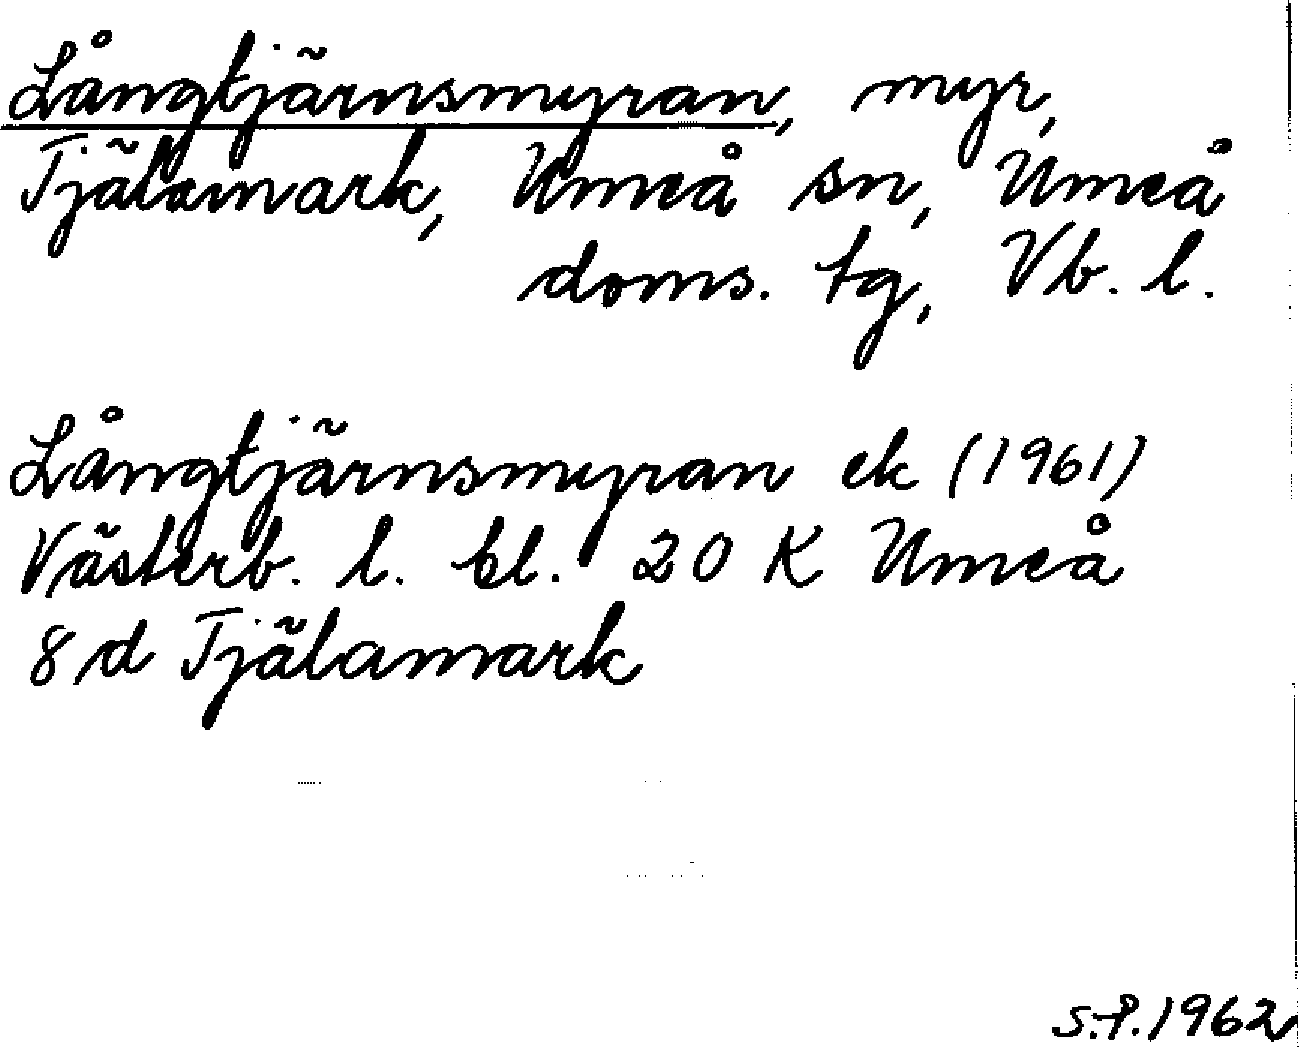 Långtjärnsmyran, myr,
Tjälamark, Umeå sn, Umeå
doms. tg, Vb. l.
Långtjärnsmyran ek (1961)
Västerb. l. bl. 20 K Umeå
8 d Tjälamark
S.P. 1962